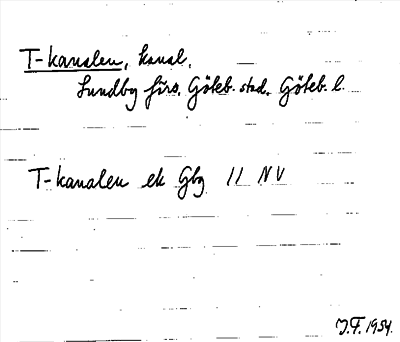 T-kanalen, kanal,
Lundby förs. Göteb. stad. Göteb. l.
T-kanalen ek Gbg 11 NV
J.F. 1934.